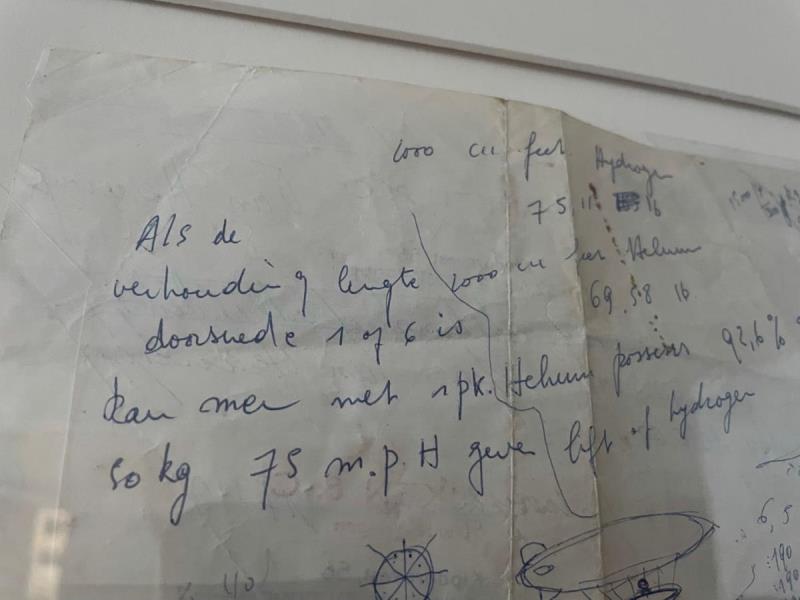 1000 cu feet Hydrogen
75,11 16
Als de
verhouding lengte 1000 cu feet Helium
69.58 16
doorsnede 1 of 6 is
kan men met 1 pk. Helium possesses 92,6%
50 kg 75 m.p.H geven lift of hydrogen
6,5
:190
:190